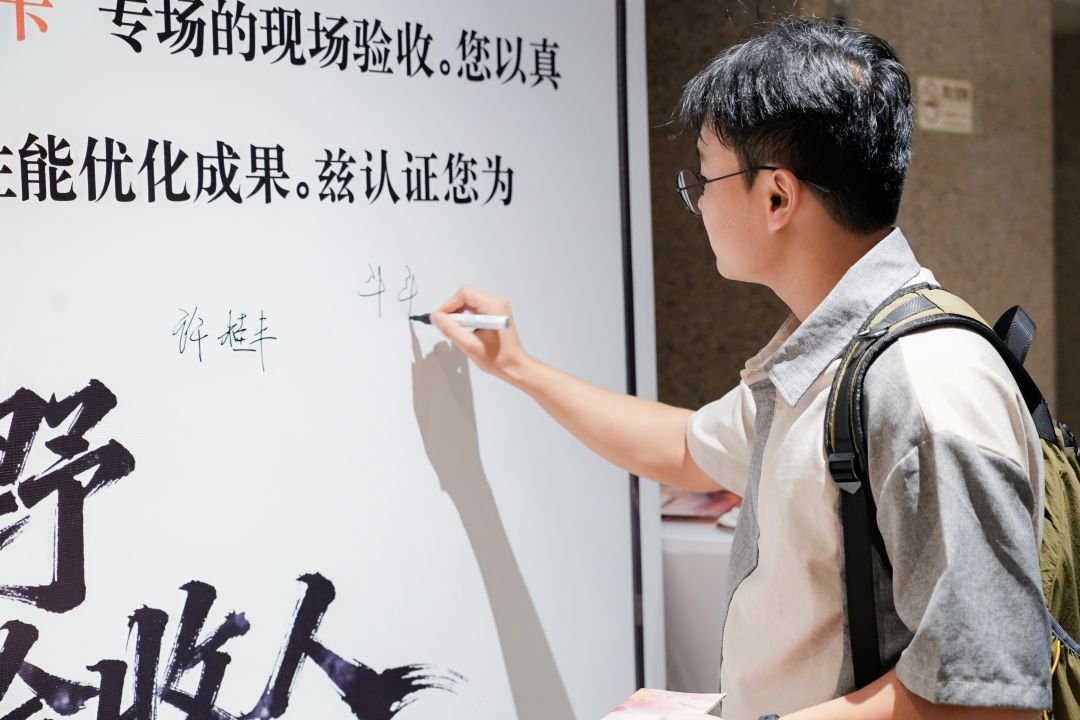 卡 专场的现场验收。您以真
能优化成果。兹认证您为
斗斗
许桂丰
野
验收人